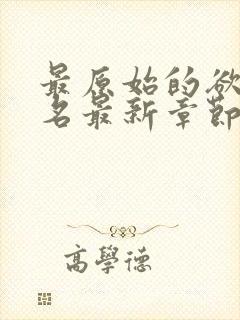 最原始的欲
名最新章節
高學德